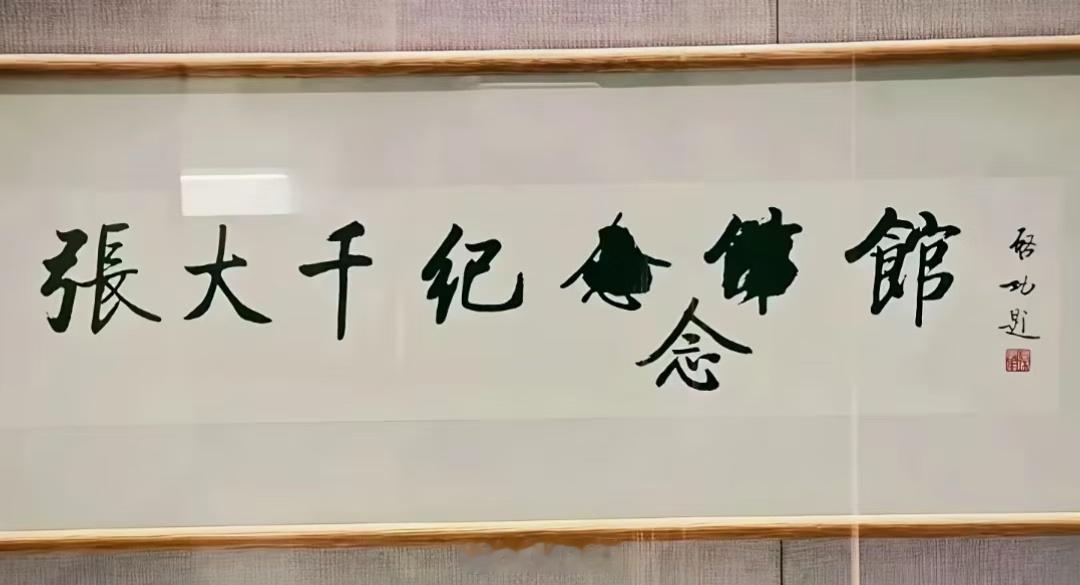 張大千纪念館
念
啓功题